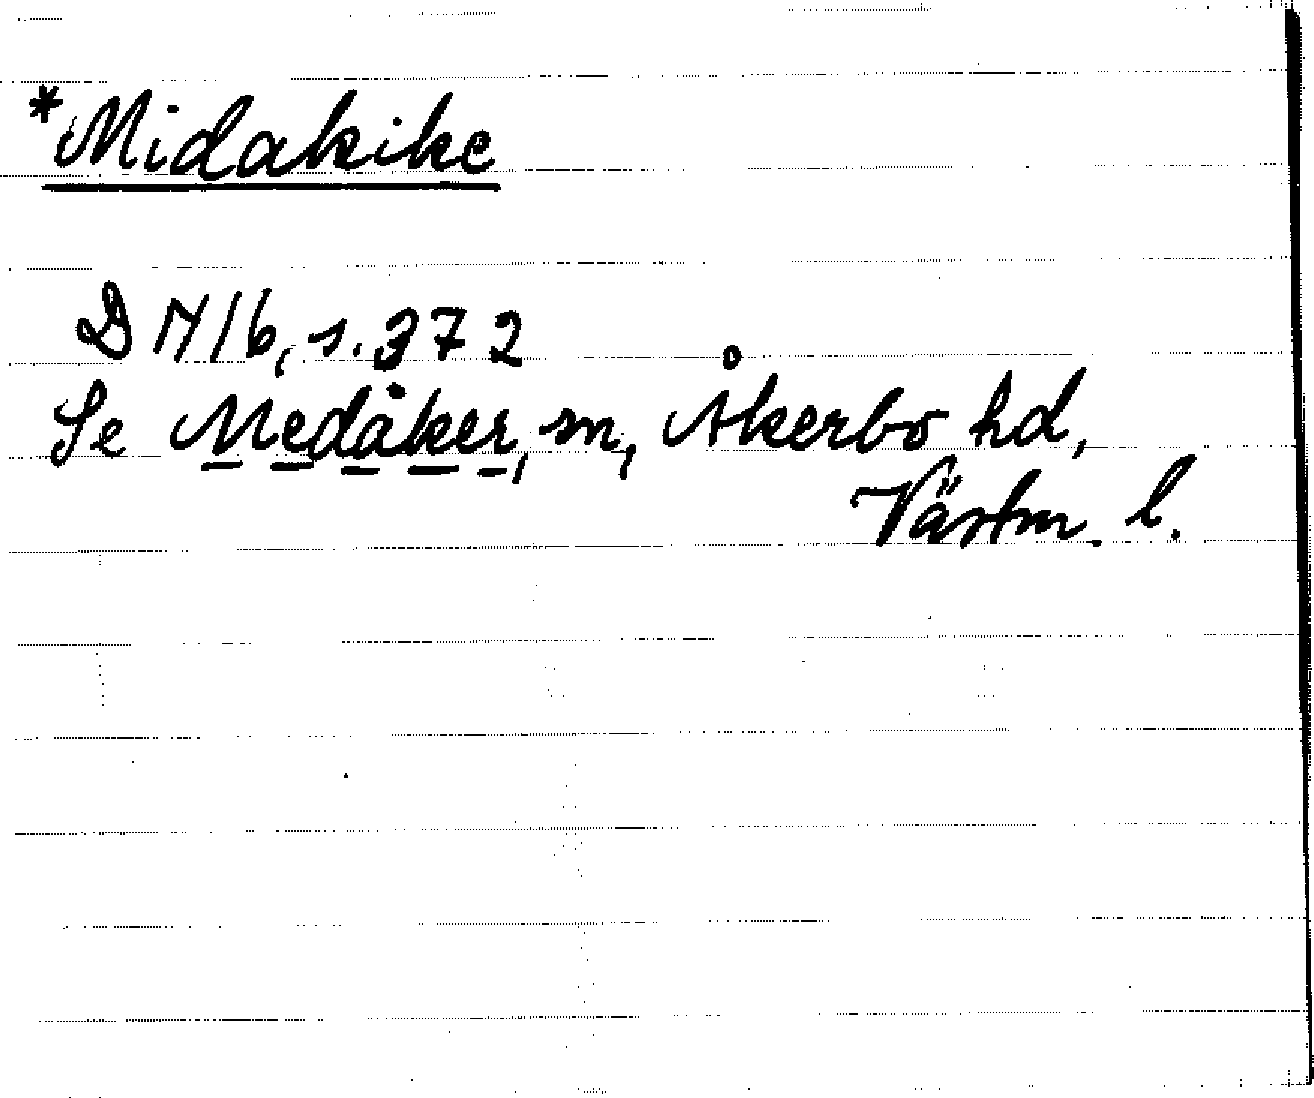 *Midakike
D N/6, s. 372
Se Medåker, sn, Åkerbo hd,
Västm. l.